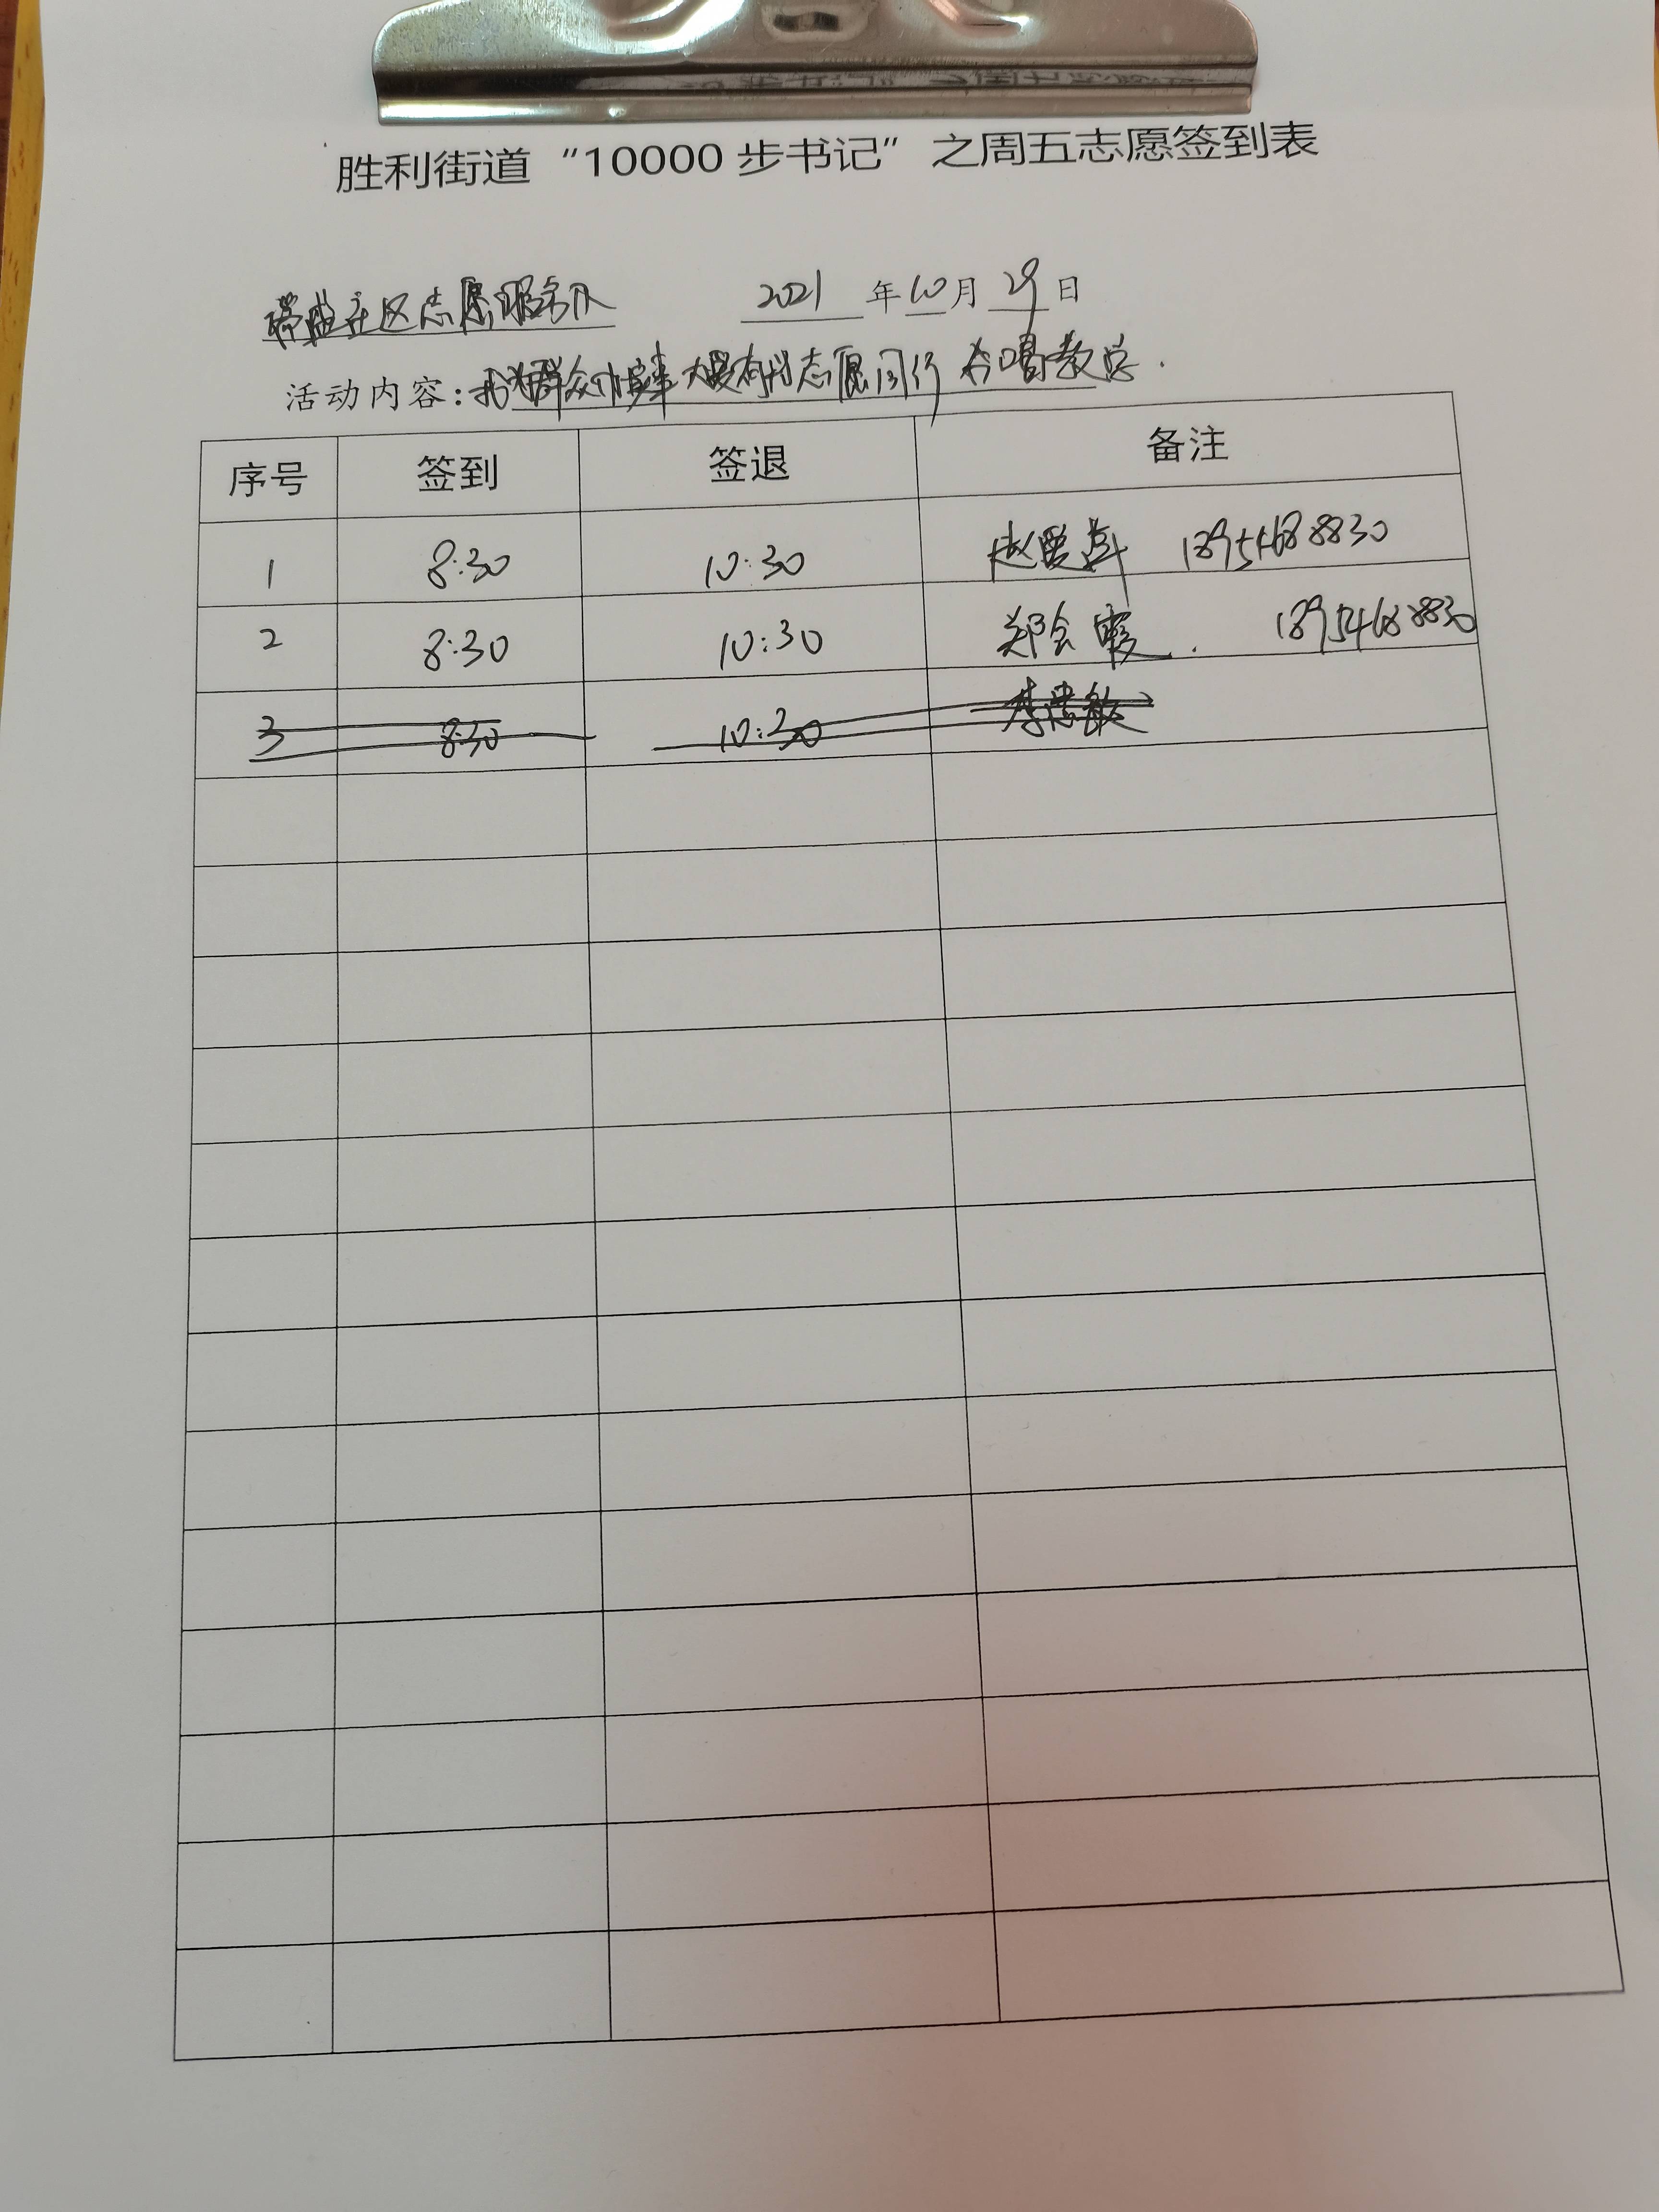 胜利街道“10000步书记”之周五志愿签到表
社区志愿服务队 2021年10月29日
活动内容:我为群众办实事 志愿同行 合唱教学.
序号 签到 签退 备注
1 8:30 10:30 赵 18954688830
2 8:30 10:30 郑会霞. 18954688830
3 8:30 10:30 李